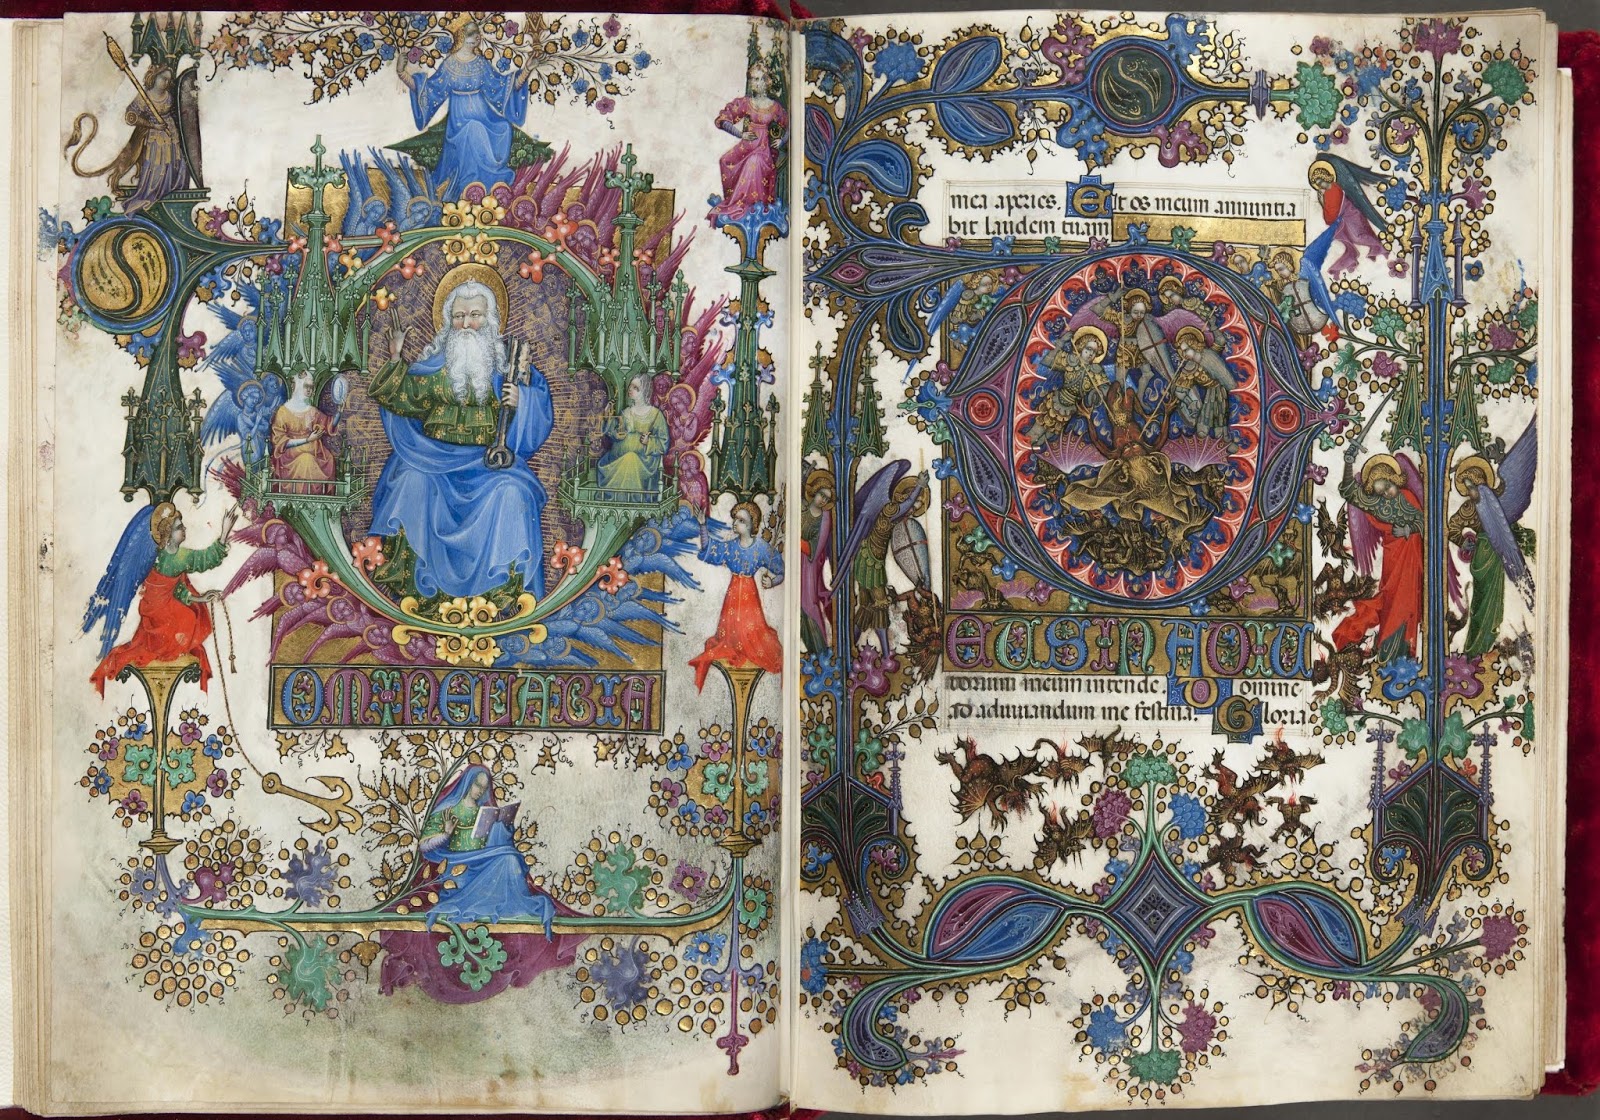 DOMINE LABIA
mea aperies. Et os meum annuntia
bit laudem tuam
DEUS IN ADIU
torium meum intende. Domine
ad adiuuandum me festina. Gloria